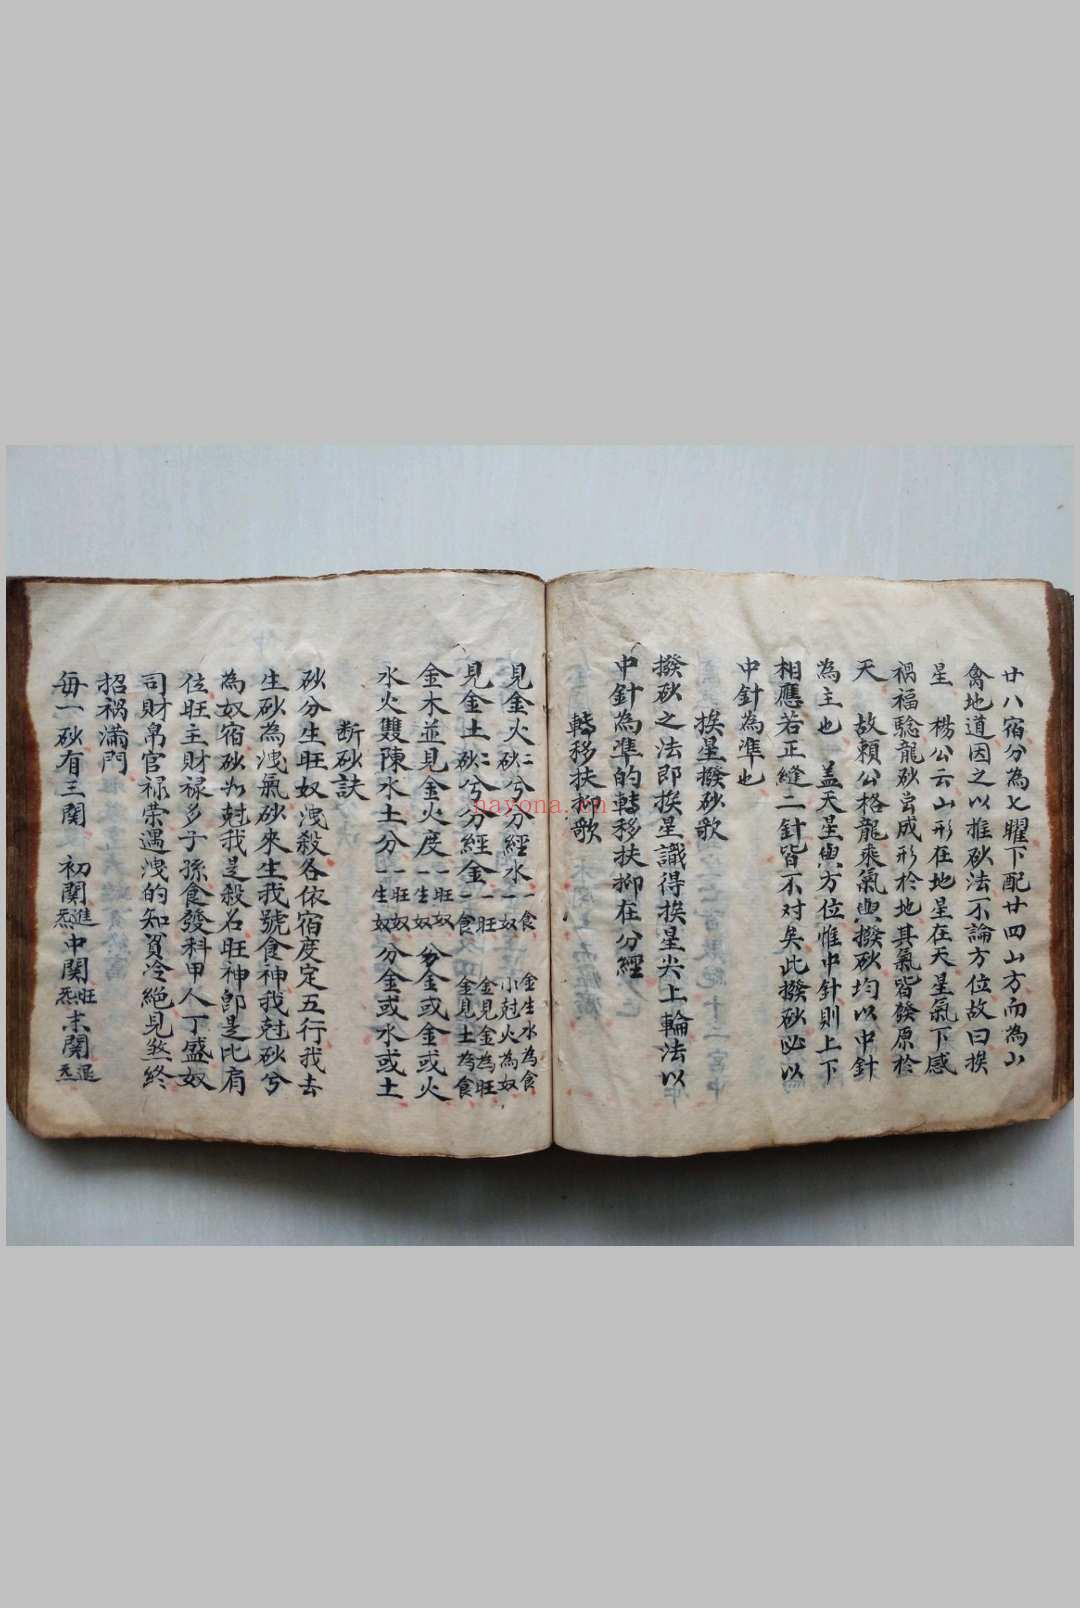 廿八宿分為七曜下配廿四山方而為山
禽地道因之以推砂法不論方位故曰挨
星 楊公云山形在地星在天星氣下感
禍福騐龍砂尝成形於地其氣皆發原於
天 故頼公格龍乘氣與撥砂均以中針
為主也 盖天星與方位惟中針則上下
相應若正縫二針皆不对矣此撥砂必以
中針為準也
挨星撥砂歌
撥砂之法即挨星識得挨星尖上輪法以
中針為準的轉移扶抑在分經
轉移扶抑歌
見金火砂二兮分經水一食一奴 金生水為食 水尅火為奴
見金土砂二兮分經金一旺一食 金見金為旺 金見土為食
金木並見金火度一旺奴一生奴 分金或金或火
水火雙陳水土分一旺奴一生奴 分金或水或土
断砂訣
砂分生旺奴洩殺各依宿度定五行我去
生砂為洩氣砂來生我號食神我尅砂兮
為奴宿砂如尅我是殺名旺神即是比肩
位旺主財禄多子孫食發科甲人丁盛奴
司財帛官禄荣遇洩的知貧冷絶見煞終
招禍滿門
每一砂有三関 初関進炁中関旺炁末関退炁
nayona.cn